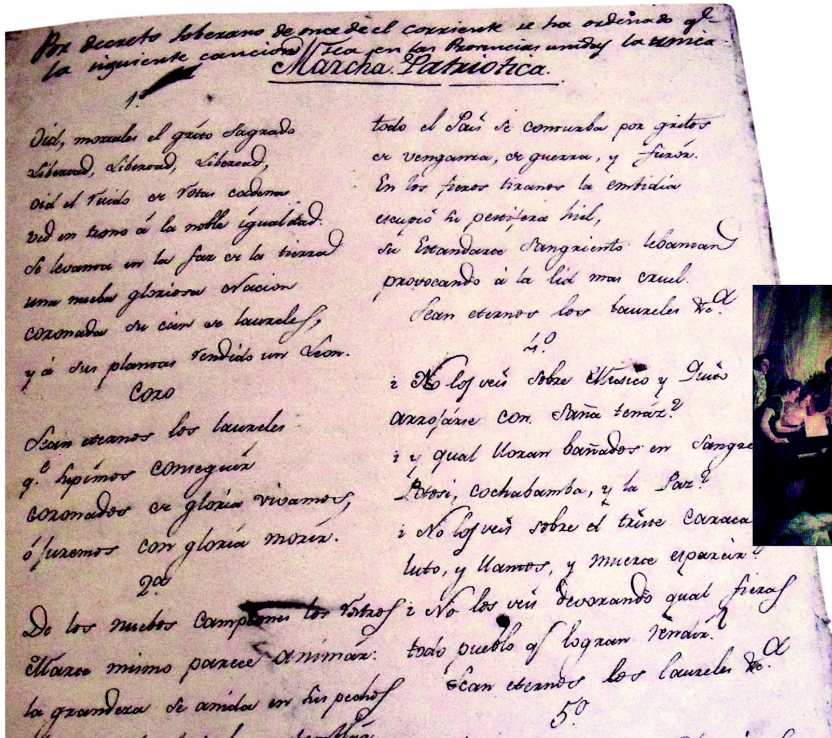 Por decreto soberano de once del corriente se ha ordenado qe
la siguiente canción sea en las Provincias unidas la unica
Marcha Patriotica.
1º
Oid, mortales el grito Sagrado
Libertad, Libertad, Libertad,
Oid el ruido de rotas cadenas
ved en trono á la noble igualdad.
Se levanta en la faz de la tierra
una nueba gloriosa Nacion
coronada su cien de laureles,
y á sus plantas rendido un Leon.
Coro
Sean eternos los laureles
q.e supimos conseguir
coronados de gloria vivamos,
ó juremos con gloria morir.
2º
De los nuebos Campeones los rostros
Marte mismo parece animár:
la grandeza se anida en sus pechos
todo el Pais se conturba por gritos
de venganza, de guerra, y furór.
En los fieros tiranos la embidia
escupió su pestifera hiel,
su Estandarte Sangriento lebantan
provocando á la lid mas cruel.
Sean eternos los laureles &c.a
4º
¿No los veis sobre Mexico y Quito
arrojárse con Saña tenáz?
¿y qual lloran bañados en Sangre
Potosi, Cochabamba, y la Paz?
¿No los veis sobre el triste Caraca
luto, y llantos, y muerte esparcir?
¿No los veis devorando qual fieras
todo pueblo qe logran rendir?
Sean eternos los laureles &c.a
5º